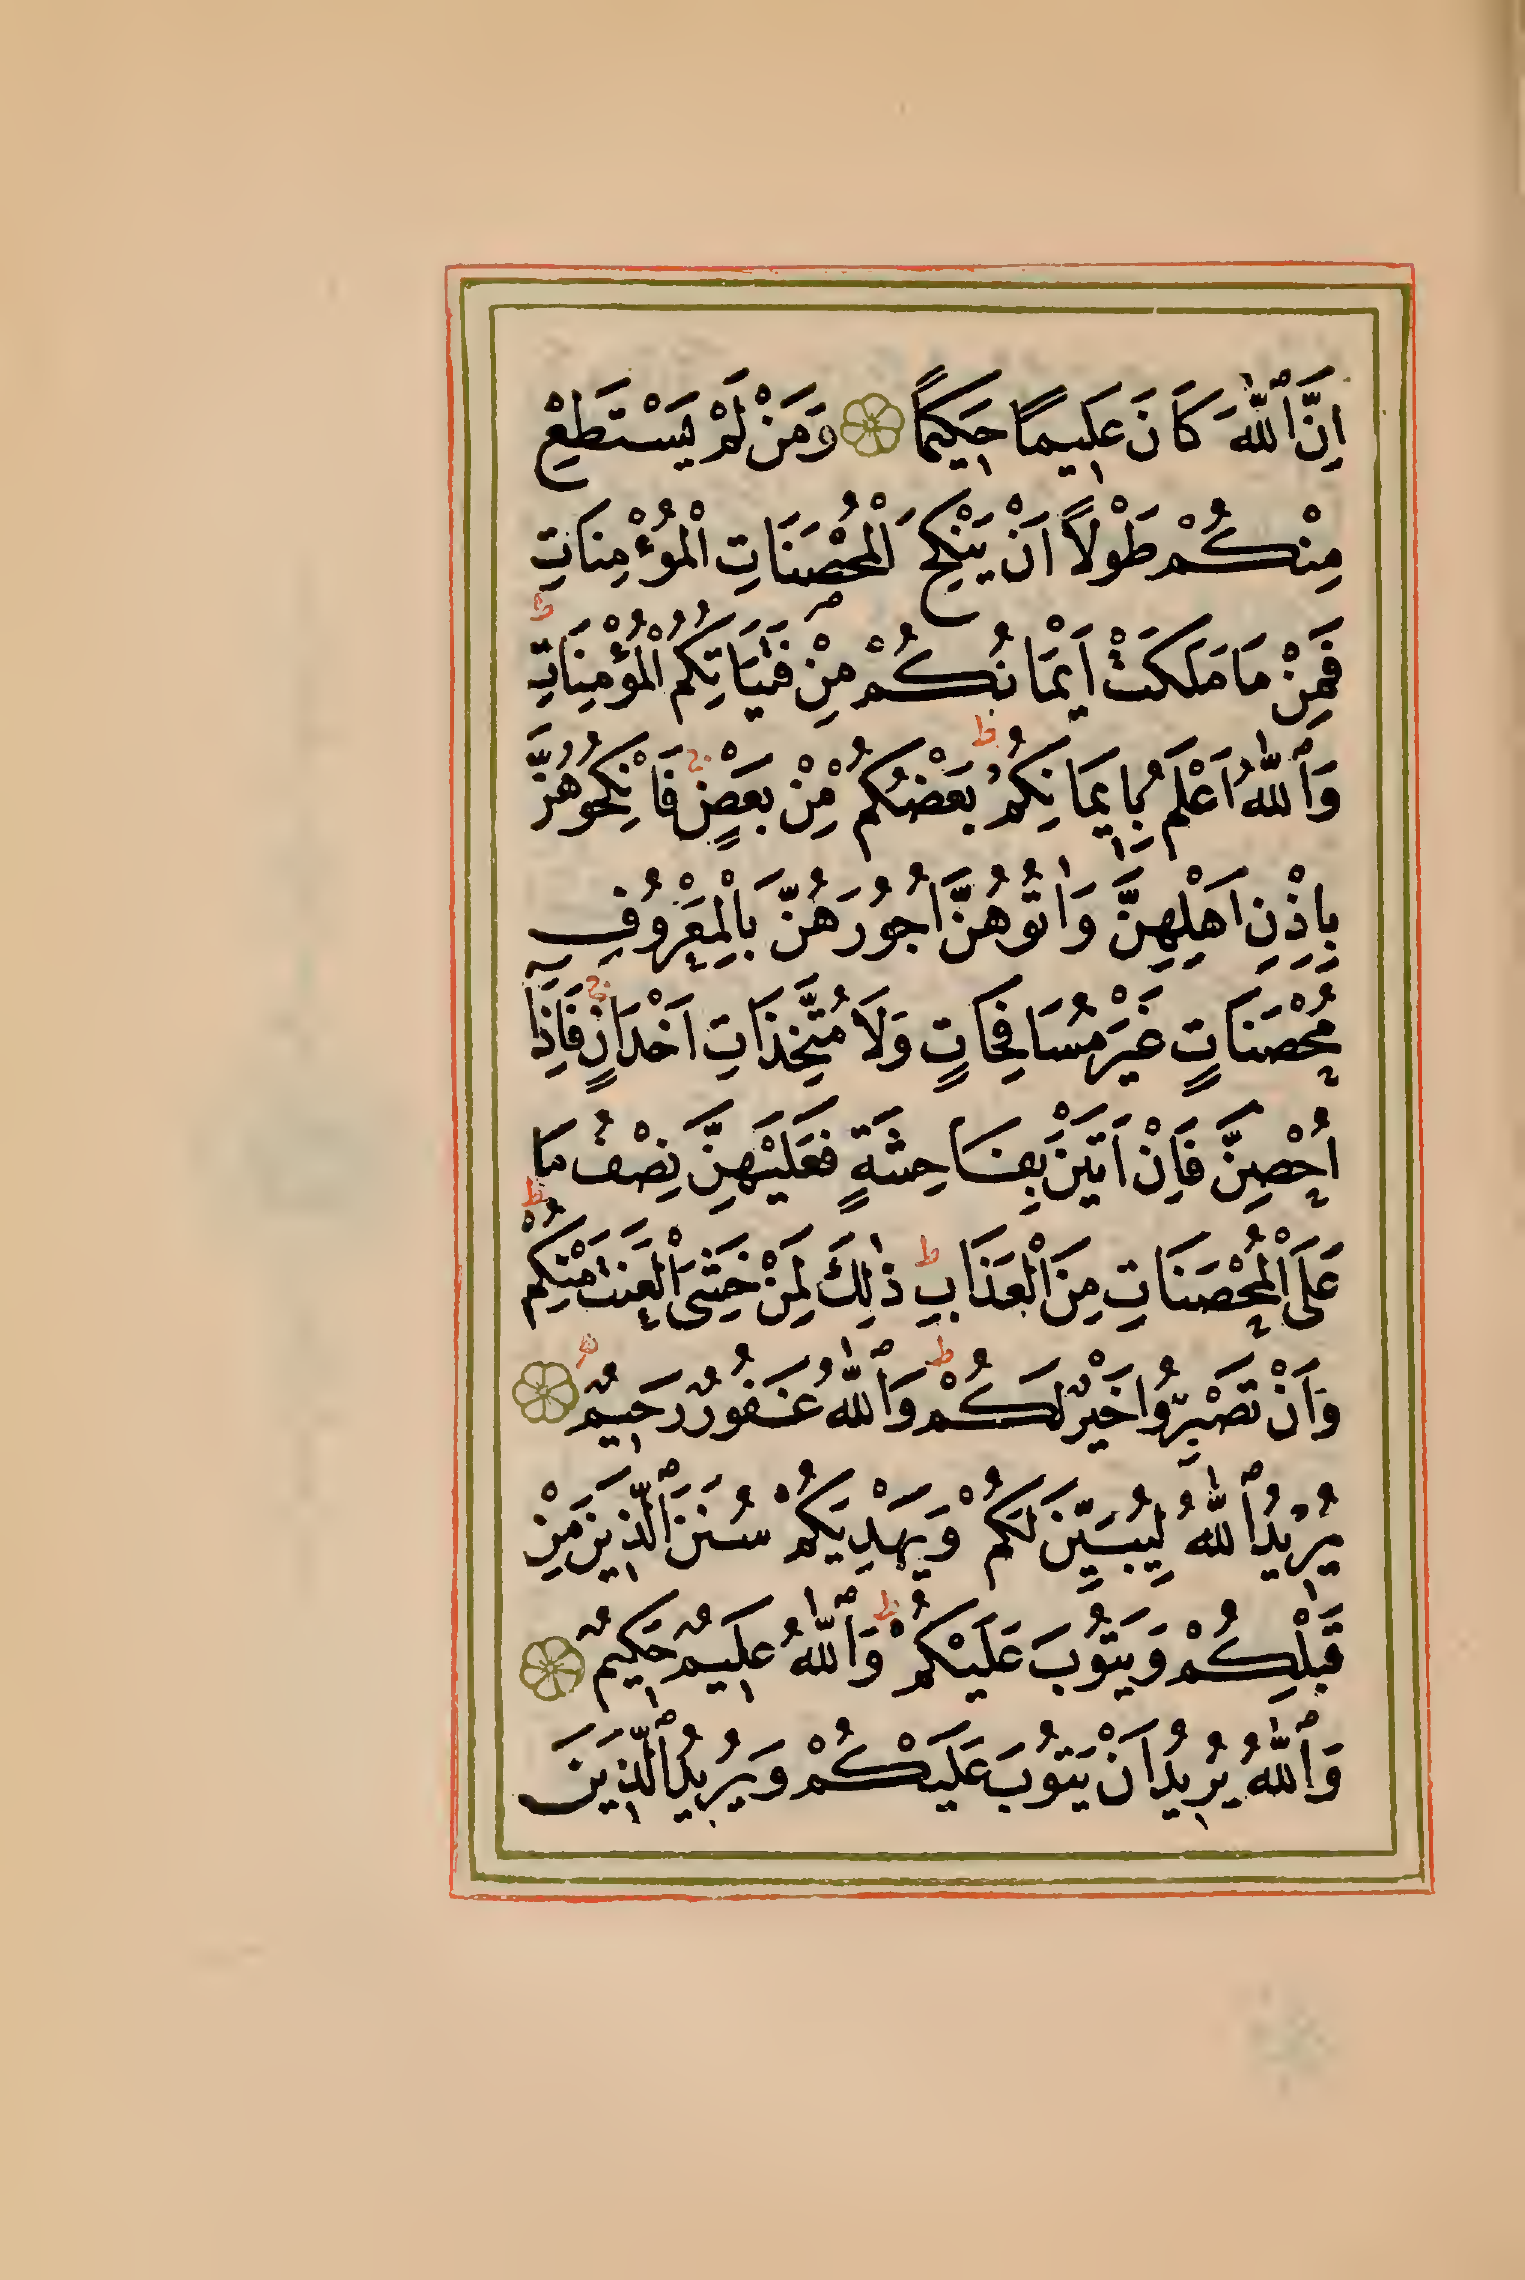 اِنَّ ٱللّٰهَ كَانَ عَلِيمًا حَكِيمًا وَمَنْ لَمْ يَسْتَطِعْ
مِنْكُمْ طَوْلاً اَنْ يَنْكِحَ الْمُحْصَنَاتِ الْمُؤْمِنَاتِ
فَمِنْ مَا مَلَكَتْ اَيْمَانُكُمْ مِنْ فَتَيَاتِكُمُ الْمُؤْمِنَاتِ ط
وَٱللّٰهُ اَعْلَمُ بِاِيمَانِكُمْ ط بَعْضُكُمْ مِنْ بَعْضٍ ج فَانْكِحُوهُنَّ
بِاِذْنِ اَهْلِهِنَّ وَاٰتُوهُنَّ اُجُورَهُنَّ بِالْمَعْرُوفِ
مُحْصَنَاتٍ غَيْرَ مُسَافِحَاتٍ وَلَا مُتَّخِذَاتِ اَخْدَانٍ ج فَاِذَا
اُحْصِنَّ فَاِنْ اَتَيْنَ بِفَاحِشَةٍ فَعَلَيْهِنَّ نِصْفُ مَا
عَلَى الْمُحْصَنَاتِ مِنَ الْعَذَابِ ط ذٰلِكَ لِمَنْ خَشِىَ الْعَنَتَ مِنْكُمْ ط
وَاَنْ تَصْبِرُوا خَيْرٌ لَكُمْ ط وَٱللّٰهُ غَفُورٌ رَحِيمٌ
يُرِيدُ ٱللّٰهُ لِيُبَيِّنَ لَكُمْ وَيَهْدِيَكُمْ سُنَنَ ٱلَّذِينَ مِنْ
قَبْلِكُمْ وَيَتُوبَ عَلَيْكُمْ ط وَٱللّٰهُ عَلِيمٌ حَكِيمٌ
وَٱللّٰهُ يُرِيدُ اَنْ يَتُوبَ عَلَيْكُمْ وَيُرِيدُ ٱلَّذِينَ